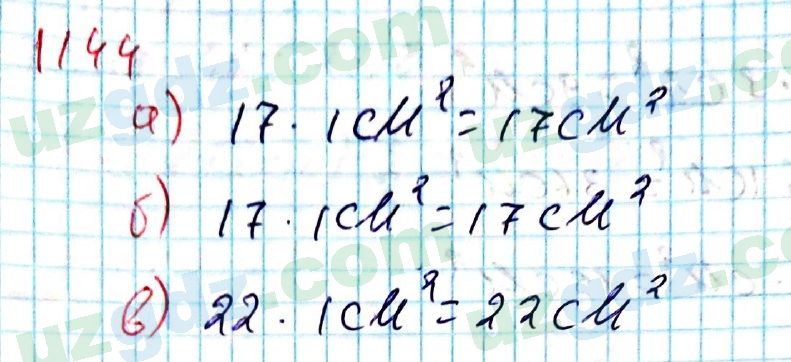 1144
а) 17 · 1 см² = 17 см²
б) 17 · 1 см² = 17 см²
в) 22 · 1 см² = 22 см²
uzgdz.com
uzgdz.com
uzgdz.com